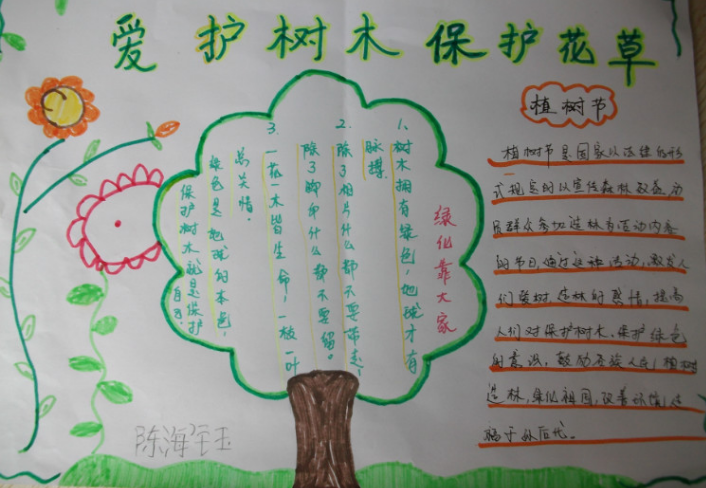 爱护树木保护花草
绿化靠大家
1、树木拥有绿色,地球才有
脉搏.
2、除了相片什么都不要带走,
除了脚印什么都不要留。
3、一花一木皆生命,一枝一叶
总关情。
绿色是地球的本色,
保护树木就是保护
自己.
植树节
植树节是国家以法律的形
式规定的以宣传森林效益,动
员群众参加造林为活动内容
的节日,通过这种活动,激发人
们爱树、造林的热情,提高
人们对保护树木、保护绿色
的意识,鼓励全族人民,植树
造林,绿化祖国,改善环境,造
福子孙后代。
陈海